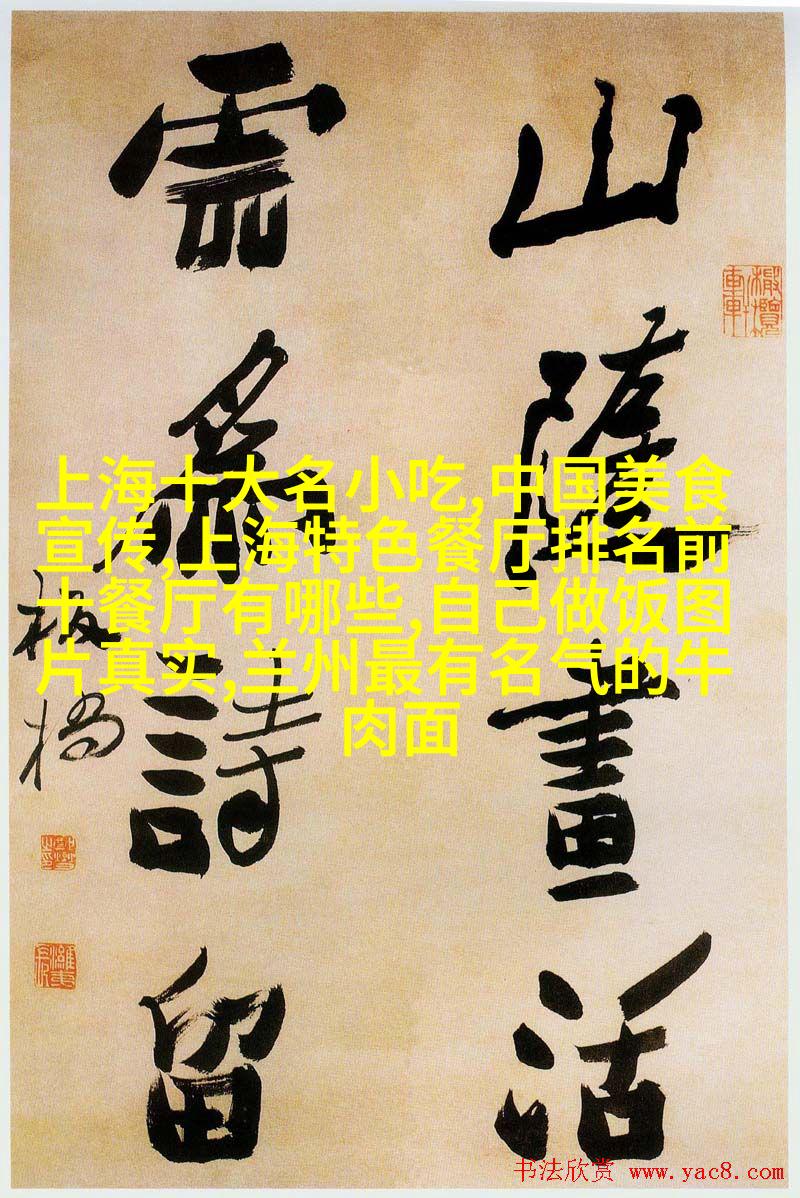 山隨畫活
雲爲詩留
板橋
上海十大名小吃,中国美食
宣传,上海特色餐厅排名前
十餐厅有哪些,自己做饭图
片真实,兰州最有名气的牛
肉面
书法欣赏 www.yac8.com